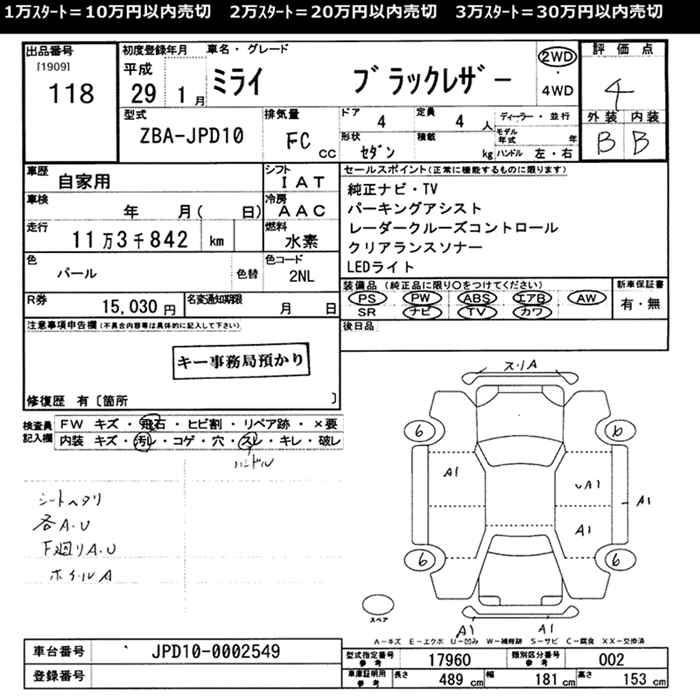 1万ｽﾀｰﾄ＝10万円以内売切　2万ｽﾀｰﾄ＝20万円以内売切　3万ｽﾀｰﾄ＝30万円以内売切
出品番号
[1909]
118
初度登録年月
平成
29 1月
車名・グレード
ミライ ブラックレザー
2WD
4WD
評価点
4
外装 内装
B B
型式
ZBA-JPD10
排気量
FC cc
ドア
4
定員
4 人
形状
セダン
積載
kg
ディーラー・並行
モデル年式 年
ハンドル 左・右
車歴
自家用
シフト
IAT
車検
年 月( 日)
冷房
AAC
走行
11万3千842 km
燃料
水素
色
パール
色替
色コード
2NL
R券
15,030 円
名変通知期限
月 日
セールスポイント(正常に機能するものに限ります)
純正ナビ・TV
パーキングアシスト
レーダークルーズコントロール
クリアランスソナー
LEDライト
装備品(純正品に限り○をつけてください)
PS PW ABS エアB AW
SR ナビ TV カワ
新車保証書
有・無
後日品
注意事項申告欄(不具合内容等は具体的に記入して下さい)
キー事務局預かり
修復歴 有〔箇所 〕
検査員
記入欄
FW キズ・飛石・ヒビ割・リペア跡・×要
内装 キズ・汚レ・コゲ・穴・スレ・キレ・破レ
ハンドル
シートヘタリ
各A.U
下廻りA.U
ホイルA
スリA
6 6
A1 A1
A1
A1
6 6
スペア
A1 A1
A－キズ E－エクボ U－凹み W－補修跡 S－サビ C－腐食 XX－交換済
車台番号
JPD10-0002549
登録番号
型式指定番号
参考
17960
類別区分番号
参考
002
車庫証明用
参考
長さ 489 cm 幅 181 cm 高さ 153 cm